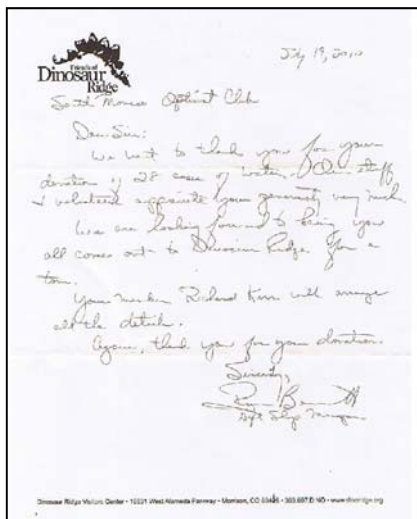 Friends of
Dinosaur
Ridge
July 19, 2010
South Monaco Optimist Club
Dear Sir:
We want to thank you for your
donation of 28 cases of water. Our staff
& volunteers appreciate your generosity very much.
We are looking forward to having you
all come out to Dinosaur Ridge for a
tour.
Your member Richard will arrange
all the details.
Again, thank you for your donation.
Sincerely,
Bennett
Gift Shop Manager
Dinosaur Ridge Visitors Center • West Alameda Parkway • Morrison, CO • www.dinoridge.org